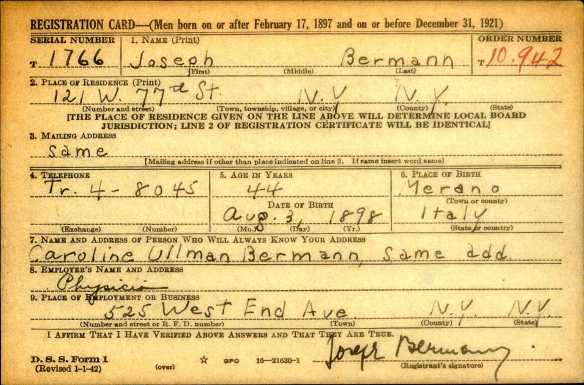 REGISTRATION CARD—(Men born on or after February 17, 1897 and on or before December 31, 1921)
SERIAL NUMBER 1. NAME (Print) ORDER NUMBER
T 1766 Joseph Bermann T 10.942
(First) (Middle) (Last)
2. PLACE OF RESIDENCE (Print)
121 W. 77th St. N.Y. N.Y.
(Number and street) (Town, township, village, or city) (County) (State)
[THE PLACE OF RESIDENCE GIVEN ON THE LINE ABOVE WILL DETERMINE LOCAL BOARD
JURISDICTION; LINE 2 OF REGISTRATION CERTIFICATE WILL BE IDENTICAL]
3. MAILING ADDRESS
Same
[Mailing address if other than place indicated on line 2. If same insert word same]
4. TELEPHONE 5. AGE IN YEARS 6. PLACE OF BIRTH
Tr. 4-8045 44 Merano
DATE OF BIRTH (Town or county)
Aug. 3, 1898 Italy
(Exchange) (Number) (Mo.) (Day) (Yr.) (State or country)
7. NAME AND ADDRESS OF PERSON WHO WILL ALWAYS KNOW YOUR ADDRESS
Caroline Ullman Bermann, Same add.
8. EMPLOYER'S NAME AND ADDRESS
Physician
9. PLACE OF EMPLOYMENT OR BUSINESS
525 West End Ave N.Y. N.Y.
(Number and street or R. F. D. number) (Town) (County) (State)
I AFFIRM THAT I HAVE VERIFIED ABOVE ANSWERS AND THAT THEY ARE TRUE.
Joseph Bermann
D. S. S. Form 1 GPO 16—21630-1
(Revised 1-1-42) (over) (Registrant's signature)